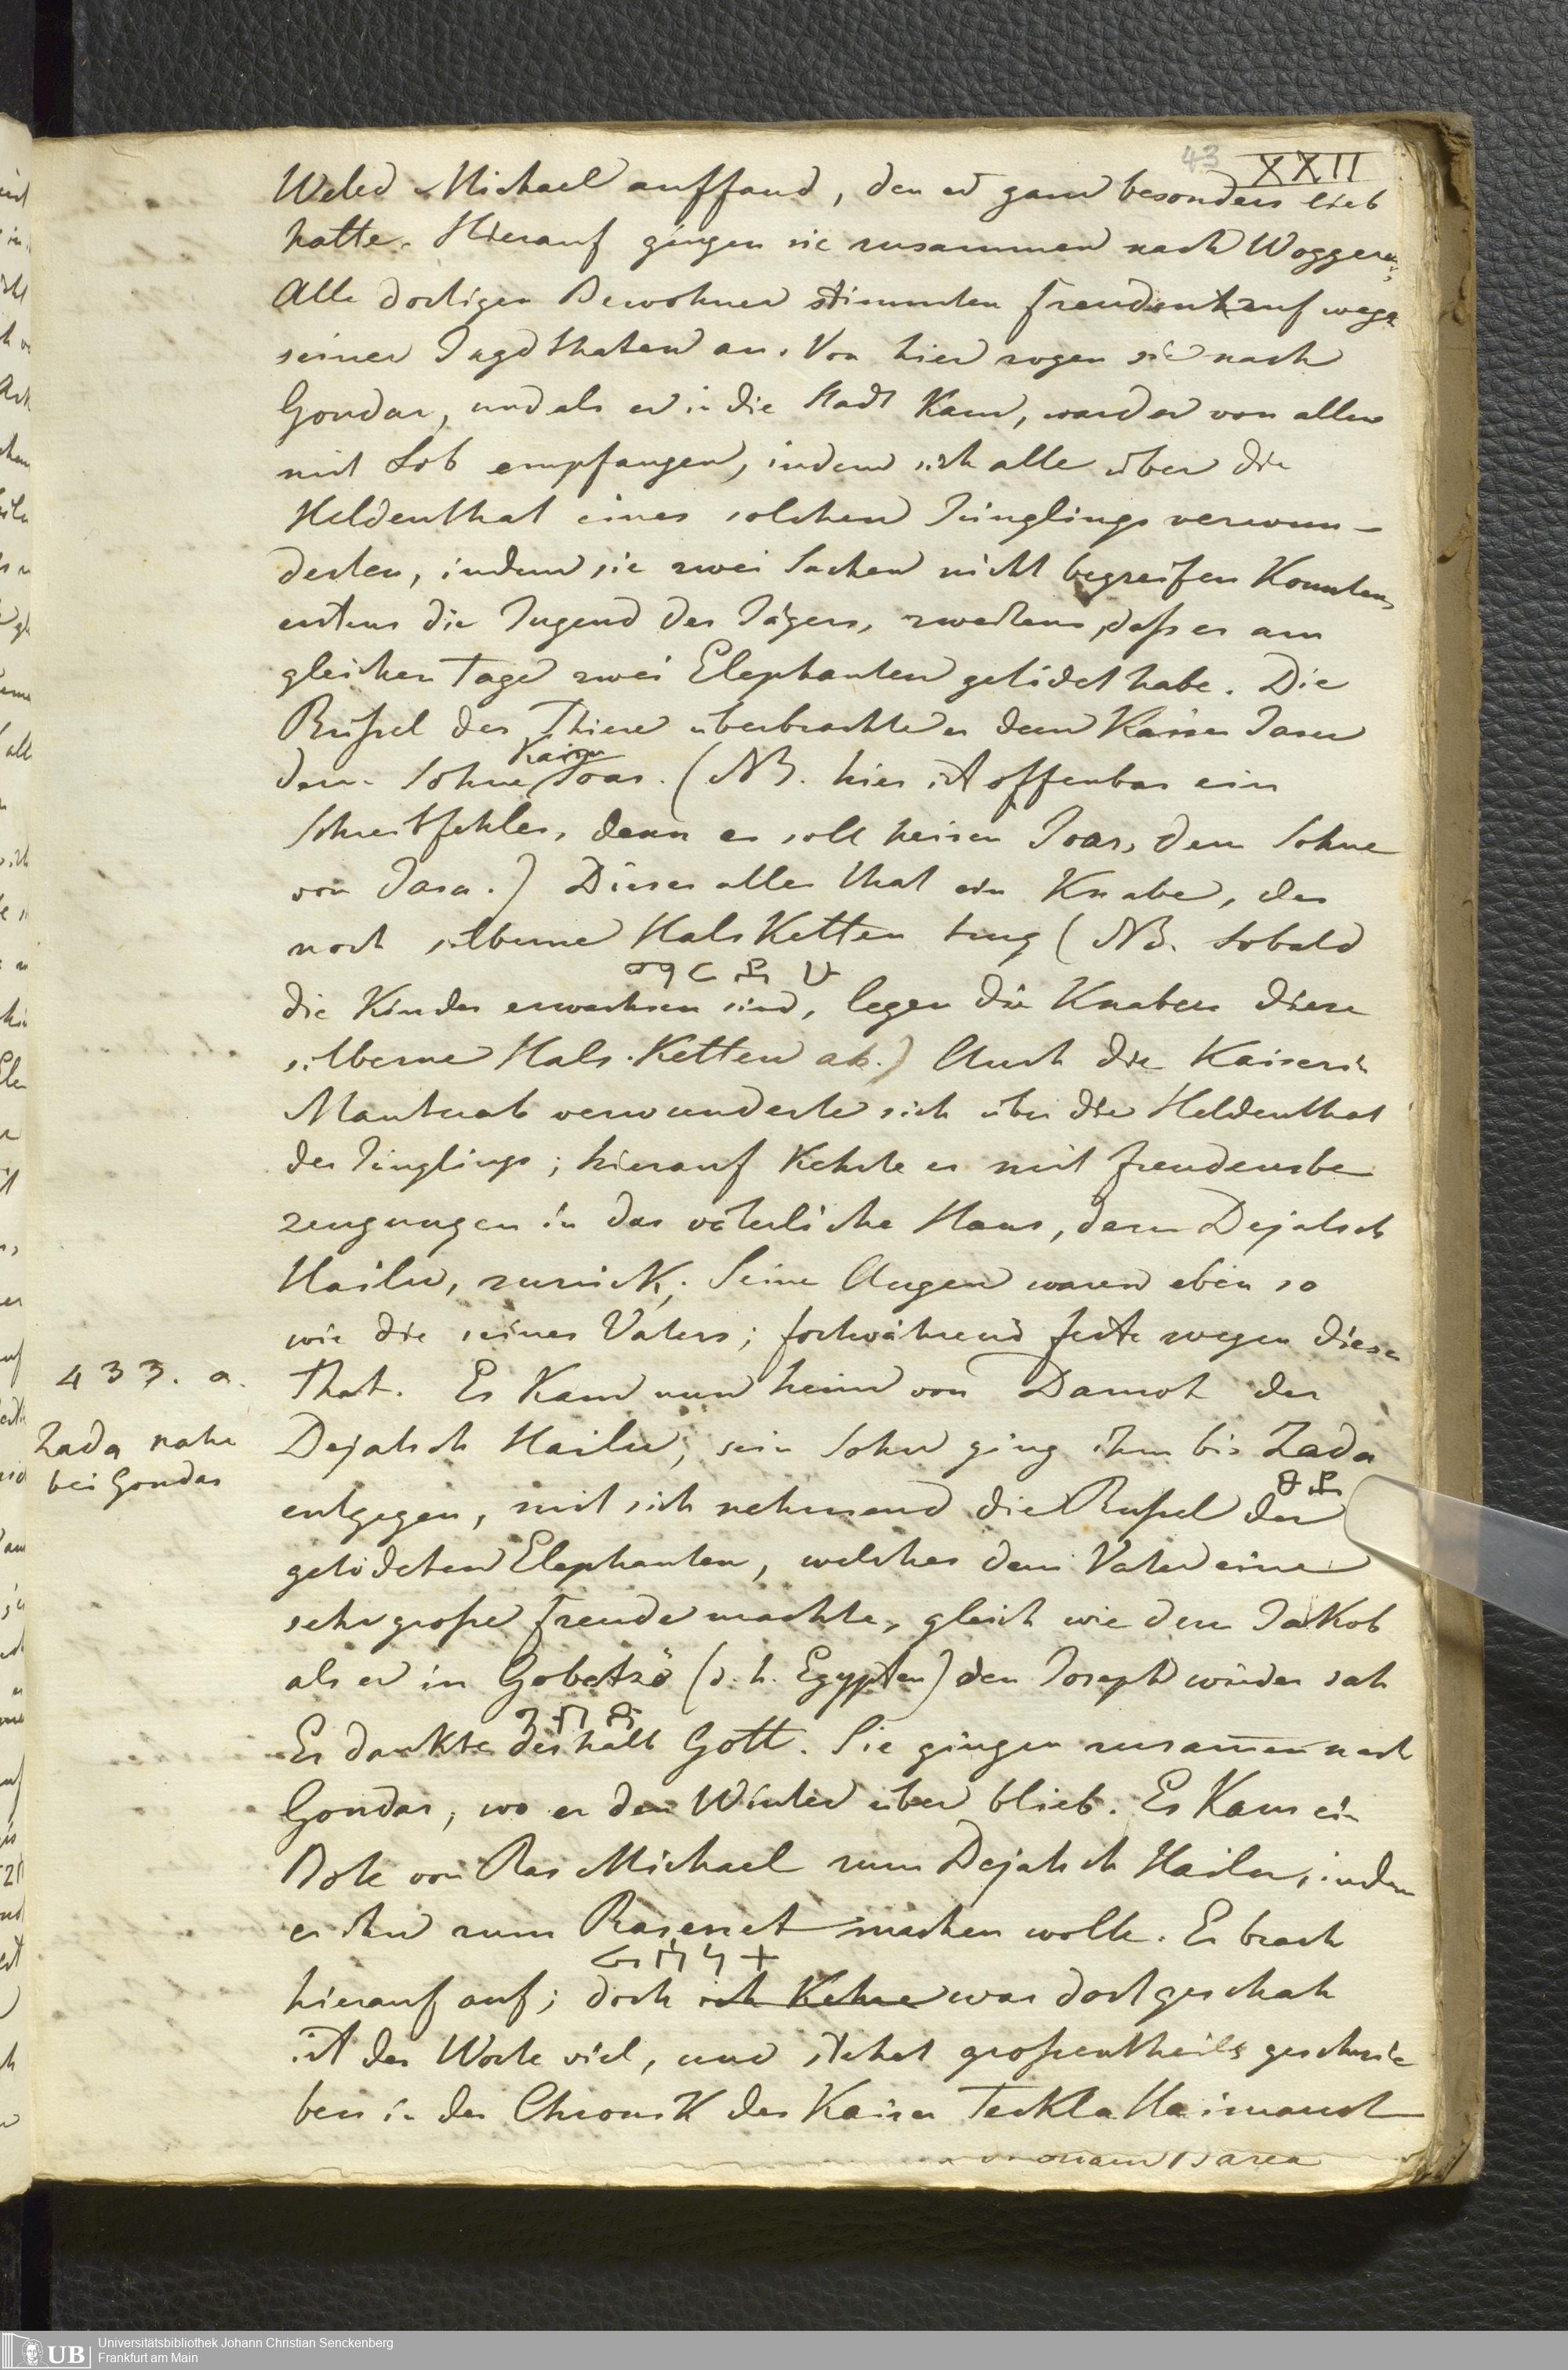 43 XXII
Weled Michael auffand, den er ganz besonders lieb
hatte. Hierauf gingen sie zusammen nach Woggera;
Alle dortigen Bewohner stimmten Freudenkauf wegen
seiner Jagdthaten an. Von hier zogen sie nach
Gondar, und als er in die Stadt Kam, ward er von allen
mit Lob empfangen, indem sich alle über die
Heldenthat eines solchen Jünglings verwun-
derten, indem sie zwei Sachen nicht begreifen Konnten,
erstens die Jugend des Jägers, zweitens, daſs er am
gleichen Tage zwei Elephanten getödet habe. Die
Rüſsel der Thiere überbrachte er dem Kaiser Jasu
dem Sohne Kaiser Joas. (NB. hier ist offenbar ein
Schreibfehler, denn es soll heisen Joas, dem Sohne
von Jasu.) Dieses alles that ein Knabe, der
noch silberne Hals Ketten trug (NB. Sobald
die Kinder erwachsen sind, legen die Knaben diese
silberne Hals-Ketten ab.) Auch die Kaiserin
Mantuab verwunderte sich über die Heldenthat
des Jünglings; hierauf Kehrte er mit Freudensbe
zeugungen in das väterliche Haus, dem Dejatsch
Hailu, zurück; Seine Augen waren eben so
wie die seines Vaters; fortwährend Feste wegen dieser
433. a.
That. Es Kam nun heim von Damot der
Zada nahe
bei Gondar
Dejatsch Hailu; sein Sohn ging ihm bis Zada
entgegen, mit sich nehmend die Rüſsel der
getödeten Elephanten, welches dem Vater eine
sehr groſse Freude machte, gleich wie dem Jakob
als er in Gobetzö (d. h. Egypten) den Joseph wieder sah
Er dankte deshalb Gott. Sie gingen zusammen nach
Gondar, wo er den Winter über blieb. Es Kam ein
Bote von Ras Michael zum Dejatsch Hailu, indem
er ihn zum Rasenet machen wollte. Er brach
hierauf auf; doch ich Kehre was dort geschah
ist der Worte viel, und stehet groſsentheils geschrie
ben in der Chronik des Kaiser Teckla Haimanot
Barea
Universitätsbibliothek Johann Christian Senckenberg
Frankfurt am Main
UB